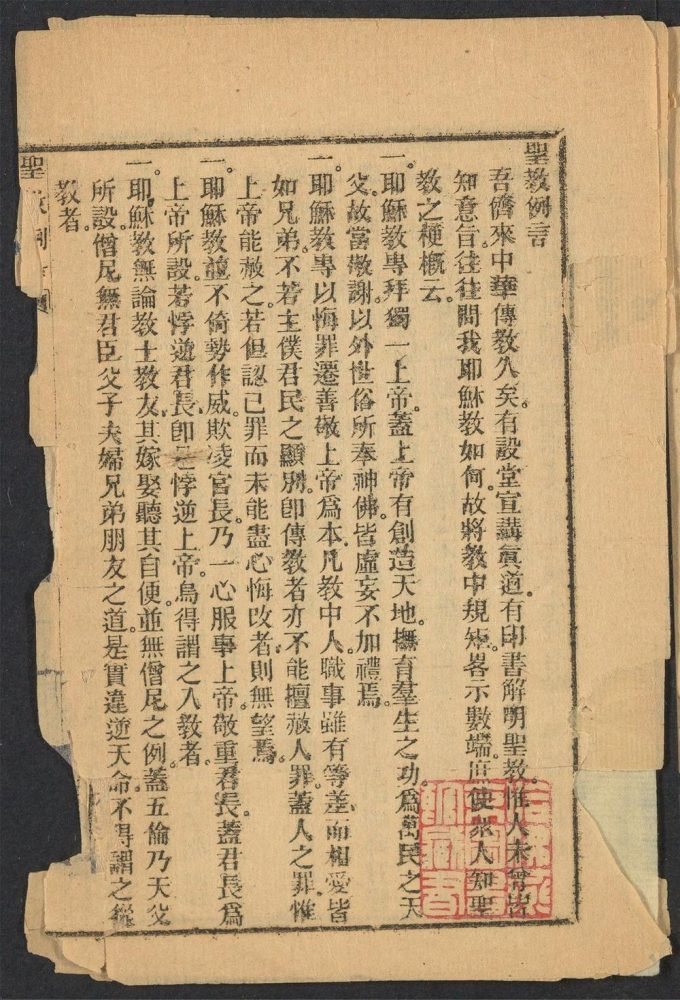 聖教例言
吾儕來中華傳教久矣。有設堂宣講眞道。有印書解明聖教。惟人未曾皆
知意旨。往往問我耶穌教如何。故將教中規矩。畧示數端。庶使衆人知聖
教之梗概云。
一。耶穌教專拜獨一上帝。蓋上帝有創造天地。撫育羣生之功。爲萬民之天
父。故當敬謝。以外世俗所奉神佛。皆虛妄不加禮焉。
一。耶穌教專以悔罪遷善敬上帝爲本。凡教中人。職事雖有等差。而相愛皆
如兄弟。不若主僕君民之顯別。卽傳教者亦不能擅赦人罪。蓋人之罪。惟
上帝能赦之。若但認己罪而未能盡心悔改者。則無望焉。
一。耶穌教並不倚勢作威。欺凌官長。乃一心服事上帝。敬重君長。蓋君長爲
上帝所設。若悖逆君長。卽是悖逆上帝。烏得謂之入教者。
一。耶穌教無論教士教友。其嫁娶聽其自便。並無僧尼之例。蓋五倫乃天父
所設。僧尼無君臣父子夫婦兄弟朋友之道。是實違逆天命。不得謂之從
教者。
聖教例言